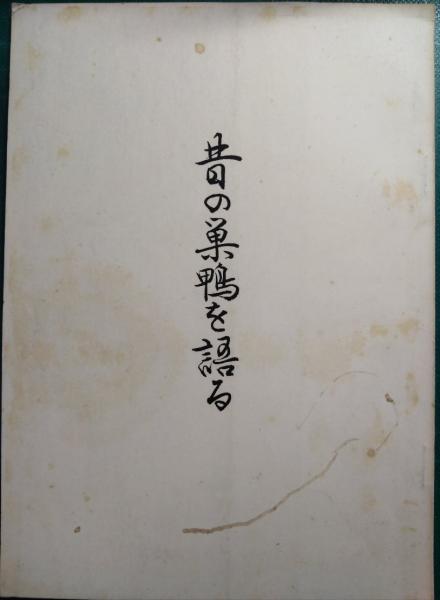 昔の巣鴨を語る